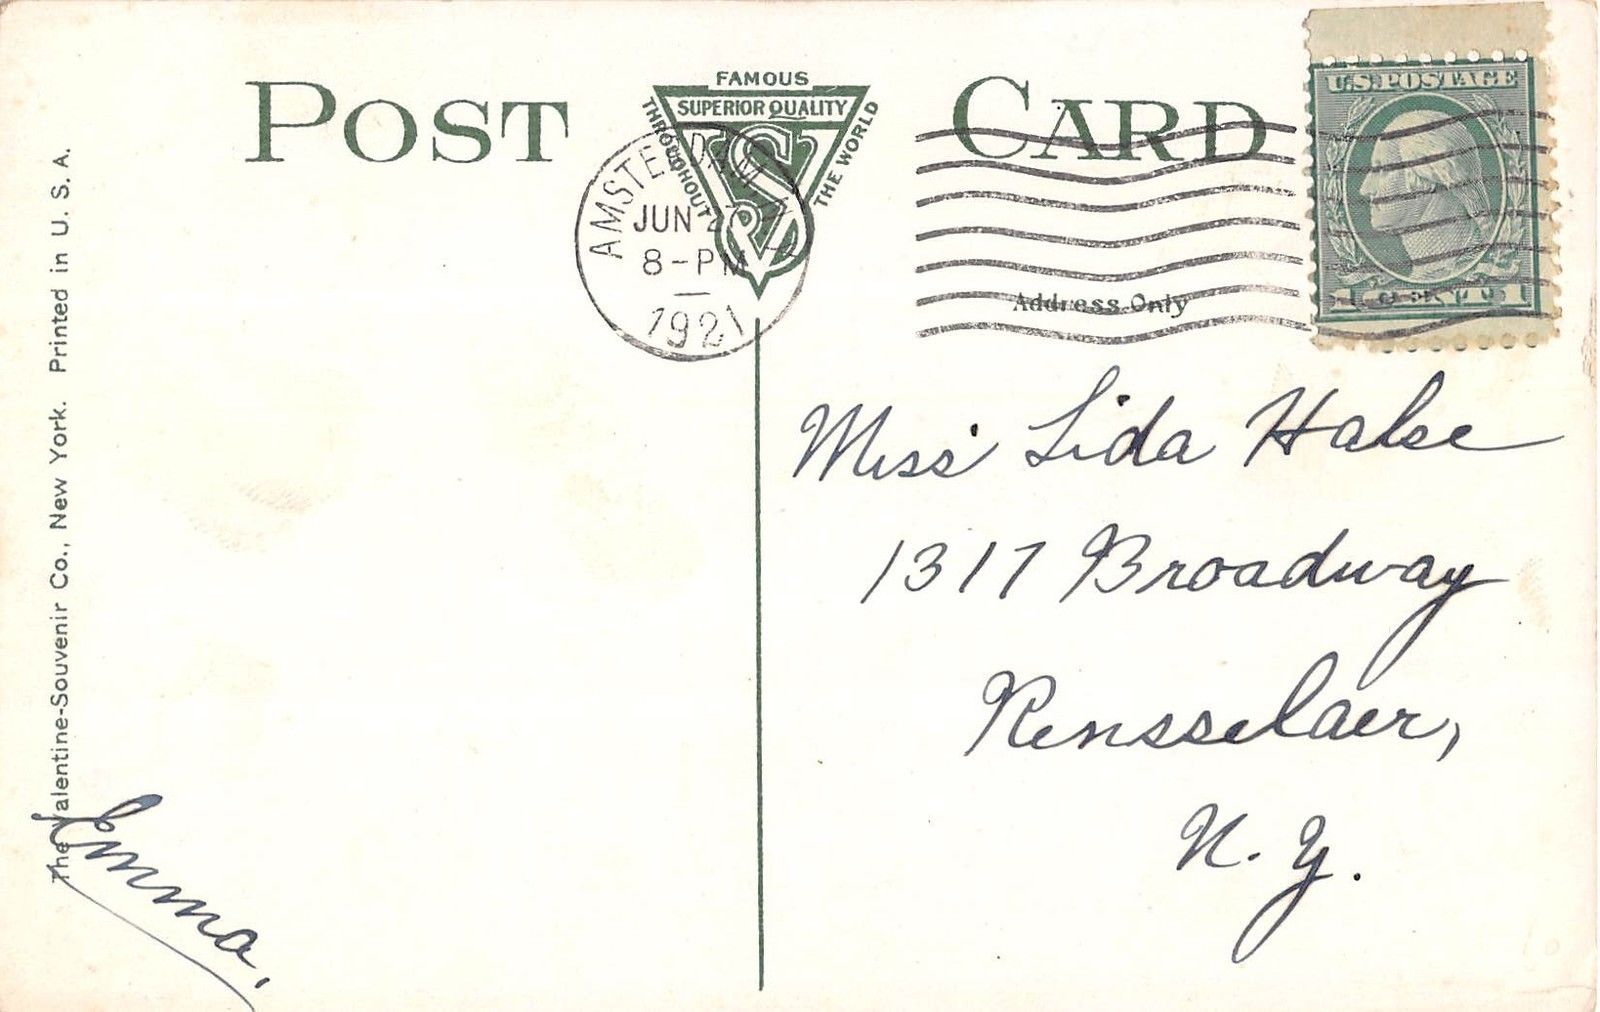 POST CARD
FAMOUS
SUPERIOR QUALITY
THROUGHOUT
THE WORLD
VS
AMSTERDAM N.Y.
JUN 27
8-PM
1921
U.S. POSTAGE
Address Only
Miss Lida Halse
1317 Broadway
Rensselaer,
N. Y.
The Valentine-Souvenir Co., New York. Printed in U. S. A.
Emma.